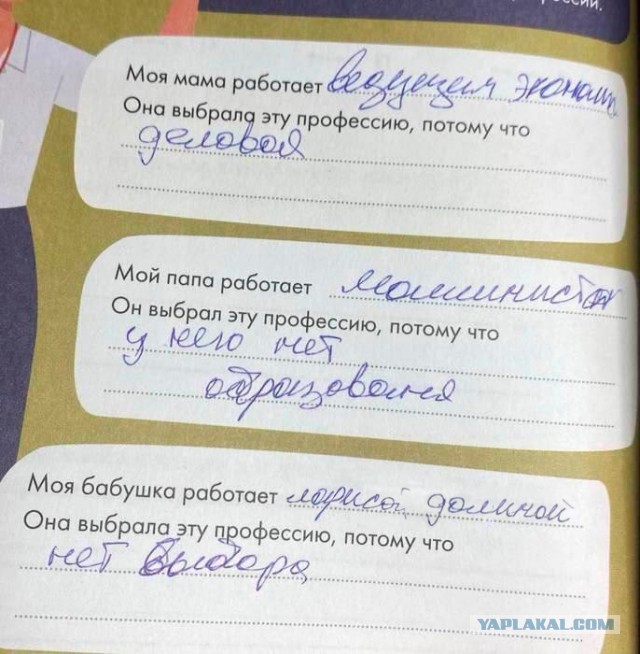 Моя мама работает ведущем эконом
Она выбрала эту профессию, потому что
деловая
Мой папа работает машинистом
Он выбрал эту профессию, потому что
у него нет
образования
Моя бабушка работает ларисой долиной
Она выбрала эту профессию, потому что
нет выбора
YAPLAKAL.COM